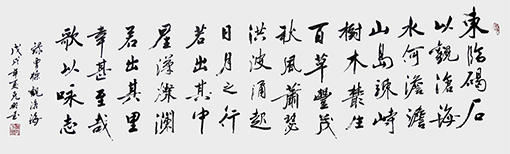 東臨碣石
以觀滄海
水何澹澹
山島竦峙
樹木叢生
百草豐茂
秋風蕭瑟
洪波涌起
日月之行
若出其中
星漢燦爛
若出其里
幸甚至哉
歌以咏志
錄曹操觀滄海
戊戌年夏